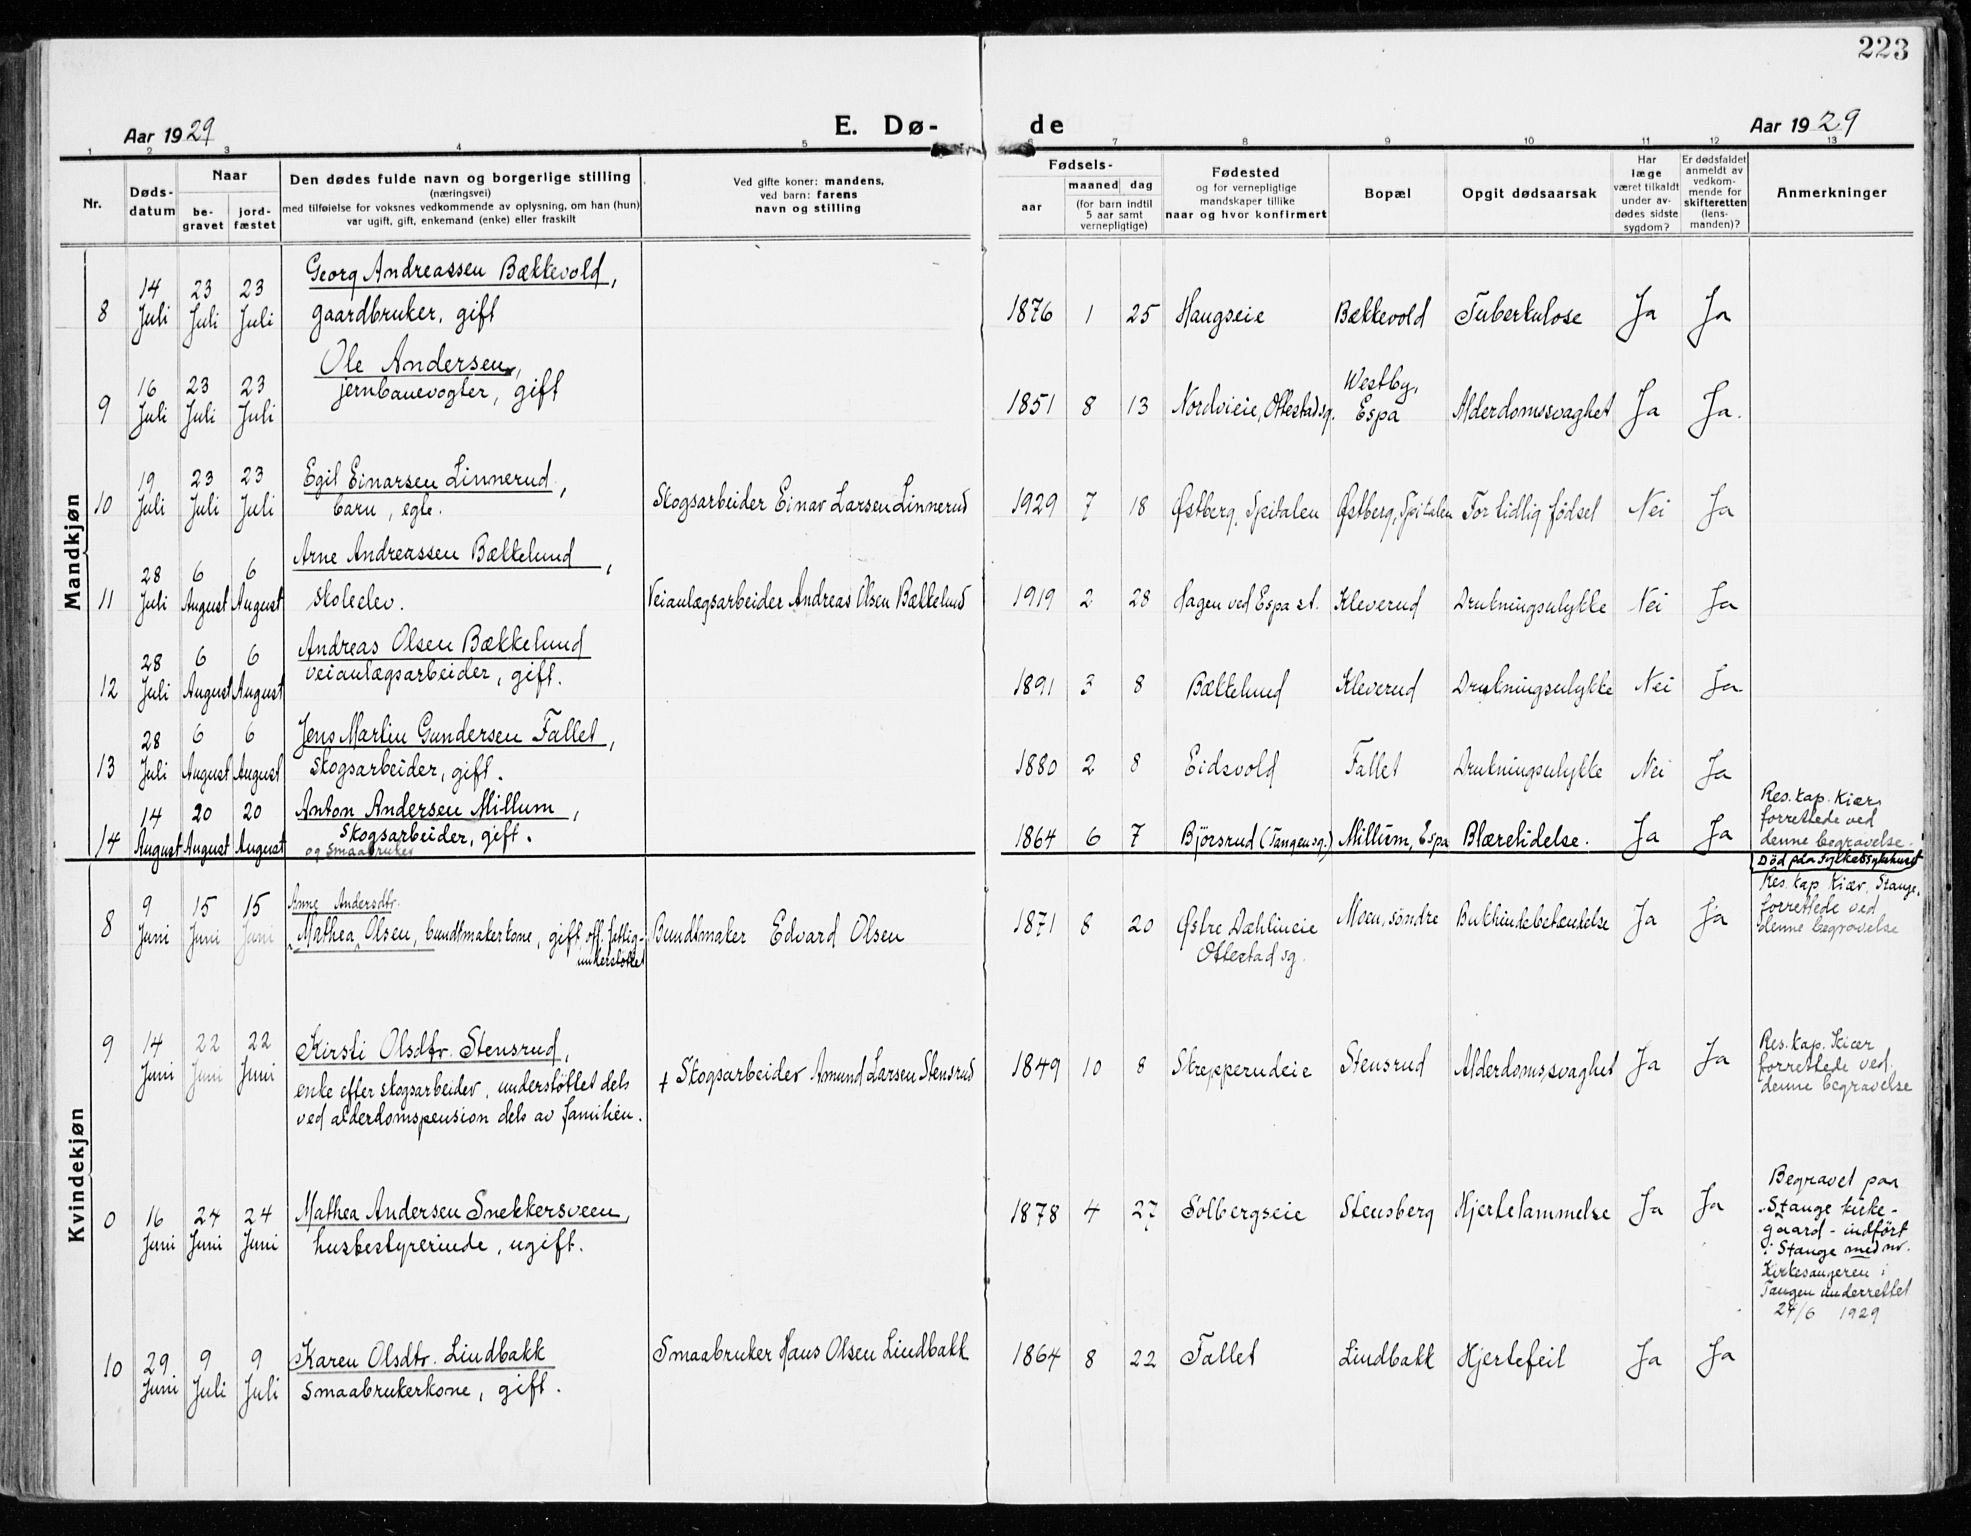 223
Aar 1929
E. Dø-
de
Aar 1929
1 2 3 4 5 6 7 8 9 10 11 12 13
Nr.
Døds-
datum
Naar
be-
gravet
jord-
fæstet
Den dødes fulde navn og borgerlige stilling
(næringsvei)
med tilføielse for voksnes vedkommende av oplysning, om han (hun)
var ugift, gift, enkemand (enke) eller fraskilt
Ved gifte koner: mandens,
ved barn: farens
navn og stilling
Fødsels-
aar
maaned dag
(for barn indtil
5 aar samt
vernepligtige)
Fødested
og for vernepligtige
mandskaper tillike
naar og hvor konfirmert
Bopæl
Opgit dødsaarsak
Har
læge
været tilkaldt
under av-
dødes sidste
sygdom?
Er dødsfaldet
anmeldt av
vedkom-
mende for
skifteretten
(lens-
manden)?
Anmerkninger
Mandkjøn
Georg Andreassen Bækkevold,
8 14 Juli 23 Juli 23 Juli gaardbruker, gift 1876 1 25 Haugseie Bækkevold Tuberkulose Ja Ja
Ole Andersen,
9 16 Juli 23 Juli 23 Juli jernbanevogter, gift 1851 8 13 Nordvieie, Ottestad sg. Westby, Espa Alderdomssvaghet Ja Ja.
Egil Einarsen Linnerud,
10 19 Juli 23 Juli 23 Juli barn, egte. Skogsarbeider Einar Larsen Linnerud 1929 7 18 Østberg, Spitalen Østberg, Spitalen For tidlig fødsel Nei Ja
Arne Andreassen Bækkelund,
11 28 Juli 6 August 6 August skoleelev. Veianlægsarbeider Andreas Olsen Bækkelund 1919 2 28 Hagen ved Espa st. Kleverud Drukningsulykke Nei Ja
Andreas Olsen Bækkelund
12 28 Juli 6 August 6 August veianlægsarbeider, gift. 1891 3 8 Bækkelund Kleverud Drukningsulykke Nei Ja
Jens Martin Gundersen Fallet,
13 28 Juli 6 August 6 August skogsarbeider, gift. 1880 2 8 Eidsvold Fallet Drukningsulykke Nei Ja
Anton Andersen Millum,
14 14 August 20 August 20 August skogsarbeider, gift. 1864 6 7 Björsrud (Tangen sg.) Millum, Espa Blærelidelse. Ja Ja
og smaabruker
Res. kap. Kiær
forrettede ved
denne begravelse.
Kvindekjøn
Død paa Fylkessykehuset
Anne Andersdtr.
8 9 Juni 15 Juni 15 Juni Mathea Olsen, bundtmakerkone, gift, off. fattig-
understøttet
Bundtmaker Edvard Olsen 1871 8 20 Østre Dæhlineie
Ottestad sg.
Moen, söndre Bukhindebetændelse Ja Ja
Res. kap. Kiær, Stange,
forrettede ved
denne begravelse
9 14 Juni 22 Juni 22 Juni Kirsti Olsdtr. Stensrud,
enke efter skogsarbeider, understöttet dels
ved alderdomspension dels av familien.
† Skogsarbeider Amund Larsen Stensrud 1849 10 8 Strepperudeie Stensrud Alderdomssvaghet Ja Ja
Res. kap. Kiær
forrettede ved
denne begravelse
0 16 Juni 24 Juni 24 Juni Mathea Andersen Snekkersveen,
husbestyrerinde, ugift.
1878 4 27 Solbergseie Stensberg Hjertelammelse Ja Ja
Begravet paa
Stange kirke-
gaard - indført
i Stange med nr.
Kirkesangeren i
Tangen underrettet
24/6 1929
10 29 Juni 9 Juli 9 Juli Karen Olsdtr. Lindbakk
smaabrukerkone, gift.
Smaabruker Hans Olsen Lindbakk 1864 8 22 Fallet Lindbakk Hjertefeil Ja Ja